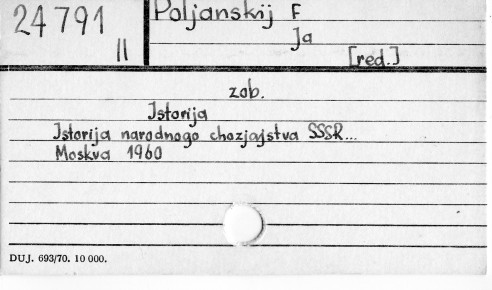 24 791
II
Poljanskij F
Ja
[red.]
zob.
Istorija
Istorija narodnogo chozjajstva SSSR...
Moskva 1960
DUJ. 693/70. 10 000.